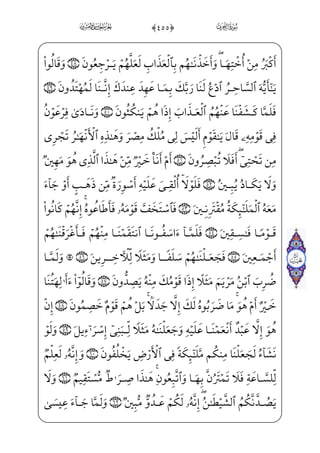 ﴿٤٥٥﴾
أَكْبَرُ مِنْ أُخْتِهَا ۖ وَأَخَذْنَٰهُم بِٱلْعَذَابِ لَعَلَّهُمْ يَرْجِعُونَ ٤٨ وَقَالُوا۟
يَٰٓأَيُّهَ ٱلسَّاحِرُ ٱدْعُ لَنَا رَبَّكَ بِمَا عَهِدَ عِندَكَ إِنَّنَا لَمُهْتَدُونَ ٤٩
فَلَمَّا كَشَفْنَا عَنْهُمُ ٱلْعَذَابَ إِذَا هُمْ يَنكُثُونَ ٥٠ وَنَادَىٰ فِرْعَوْنُ
فِى قَوْمِهِۦ قَالَ يَٰقَوْمِ أَلَيْسَ لِى مُلْكُ مِصْرَ وَهَٰذِهِ ٱلْأَنْهَٰرُ تَجْرِى
مِن تَحْتِىٓ ۖ أَفَلَا تُبْصِرُونَ ٥١ أَمْ أَنَا۠ خَيْرٌ مِّنْ هَٰذَا ٱلَّذِى هُوَ مَهِينٌ
وَلَا يَكَادُ يُبِينُ ٥٢ فَلَوْلَآ أُلْقِىَ عَلَيْهِ أَسْوِرَةٌ مِّن ذَهَبٍ أَوْ جَآءَ
مَعَهُ ٱلْمَلَٰٓئِكَةُ مُقْتَرِنِينَ ٥٣ فَٱسْتَخَفَّ قَوْمَهُۥ فَأَطَاعُوهُ ۚ إِنَّهُمْ كَانُوا۟
قَوْمًا فَٰسِقِينَ ٥٤ فَلَمَّآ ءَاسَفُونَا ٱنتَقَمْنَا مِنْهُمْ فَأَغْرَقْنَٰهُمْ
أَجْمَعِينَ ٥٥ فَجَعَلْنَٰهُمْ سَلَفًا وَمَثَلًا لِّلْءَاخِرِينَ ٥٦ ۞ وَلَمَّا
ضُرِبَ ٱبْنُ مَرْيَمَ مَثَلًا إِذَا قَوْمُكَ مِنْهُ يَصِدُّونَ ٥٧ وَقَالُوٓا۟ ءَأَٰلِهَتُنَا
خَيْرٌ أَمْ هُوَ ۚ مَا ضَرَبُوهُ لَكَ إِلَّا جَدَلًۢا ۚ بَلْ هُمْ قَوْمٌ خَصِمُونَ ٥٨ إِنْ
هُوَ إِلَّا عَبْدٌ أَنْعَمْنَا عَلَيْهِ وَجَعَلْنَٰهُ مَثَلًا لِّبَنِىٓ إِسْرَٰٓءِيلَ ٥٩ وَلَوْ
نَشَآءُ لَجَعَلْنَا مِنكُم مَّلَٰٓئِكَةً فِى ٱلْأَرْضِ يَخْلُفُونَ ٦٠ وَإِنَّهُۥ لَعِلْمٌ
لِّلسَّاعَةِ فَلَا تَمْتَرُنَّ بِهَا وَٱتَّبِعُونِ ۚ هَٰذَا صِرَٰطٌ مُّسْتَقِيمٌ ٦١ وَلَا
يَصُدَّنَّكُمُ ٱلشَّيْطَٰنُ ۖ إِنَّهُۥ لَكُمْ عَدُوٌّ مُّبِينٌ ٦٢ وَلَمَّا جَآءَ عِيسَىٰ